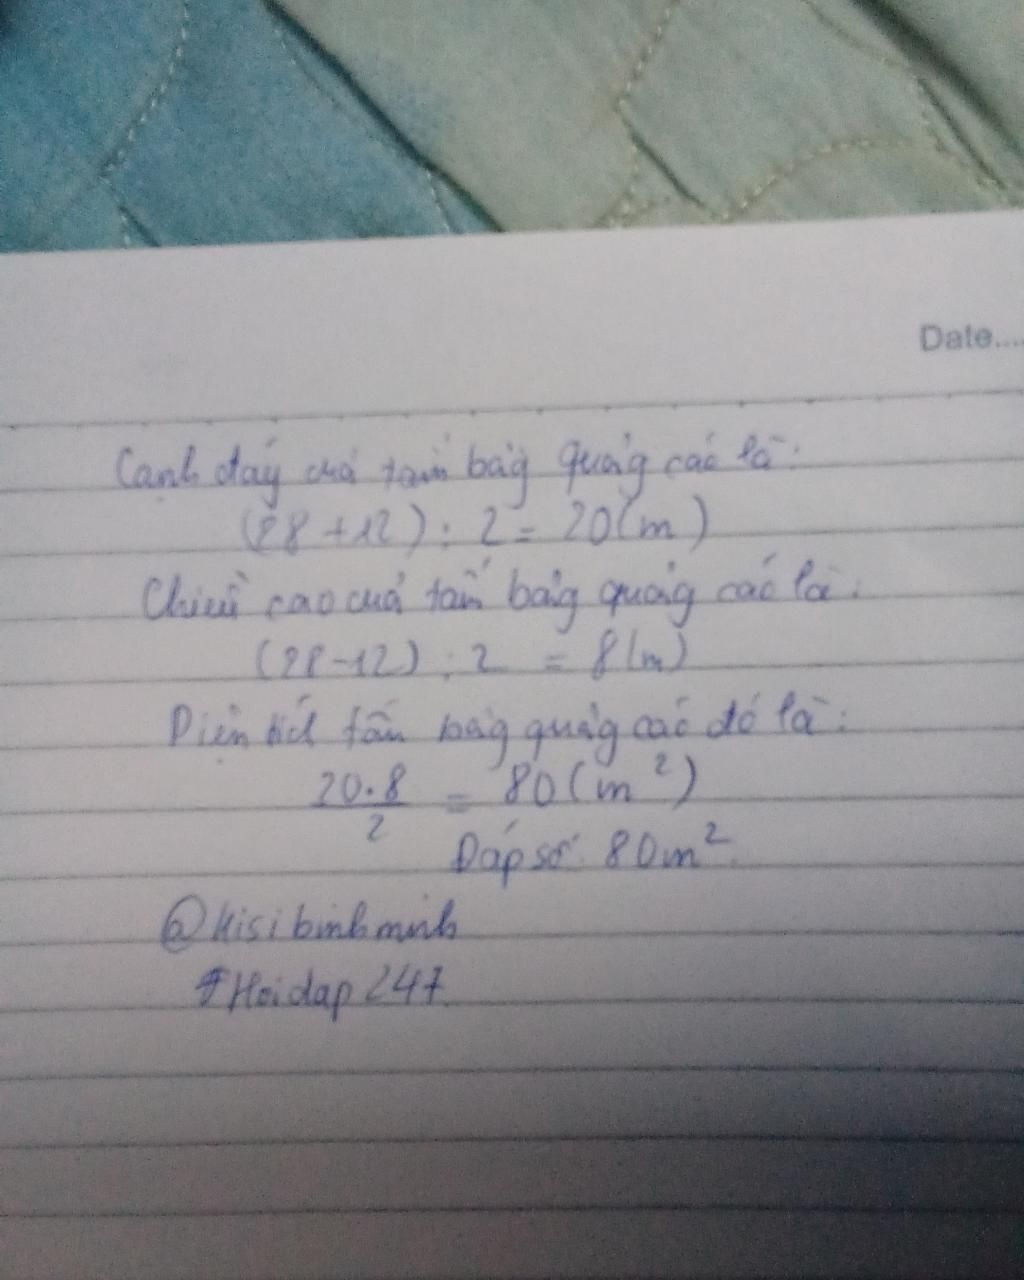 Date....
Cạnh đáy của tấm bảng quảng cáo là:
(28 + 12) : 2 = 20(m)
Chiều cao của tấm bảng quảng cáo là:
(28 - 12) : 2 = 8(m)
Diện tích tấm bảng quảng cáo đó là:
20.8/2 = 80(m²)
Đáp số: 80m².
@kisibinhminh
#Hoidap247.